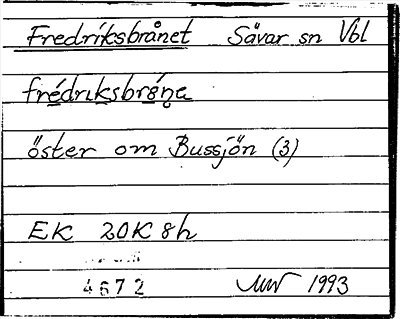 Fredriksbrånet Sävar sn Vbl
frédrıksbrǻn̥a
öster om Bussjön (3)
EK 20K8h
4672 1993